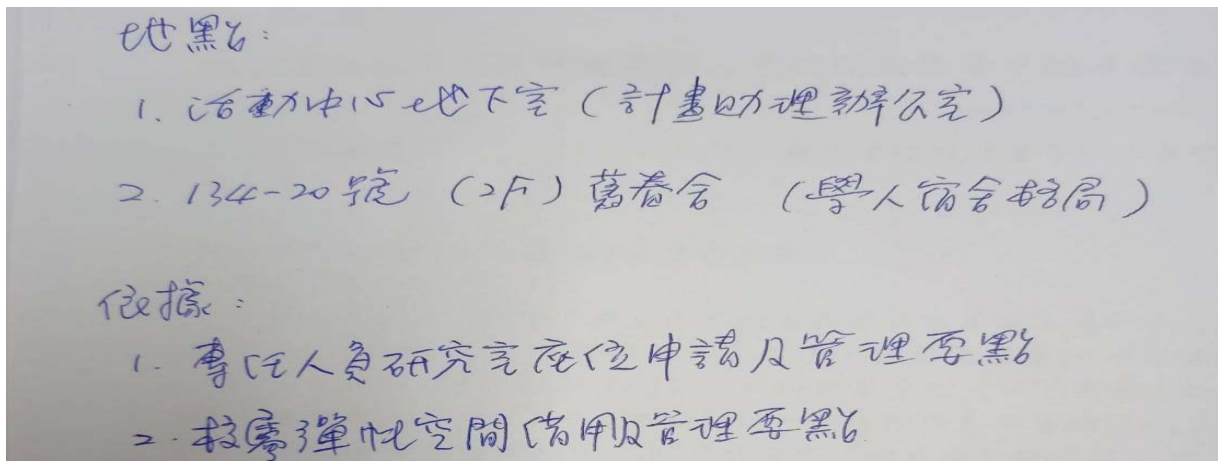 地點：
1. 活動中心地下室（計畫助理辦公室）
2. 134-20號（2F）舊眷舍（學人宿舍格局）
依據：
1. 專任人員研究室座位申請及管理要點
2. 校屬彈性空間借用及管理要點